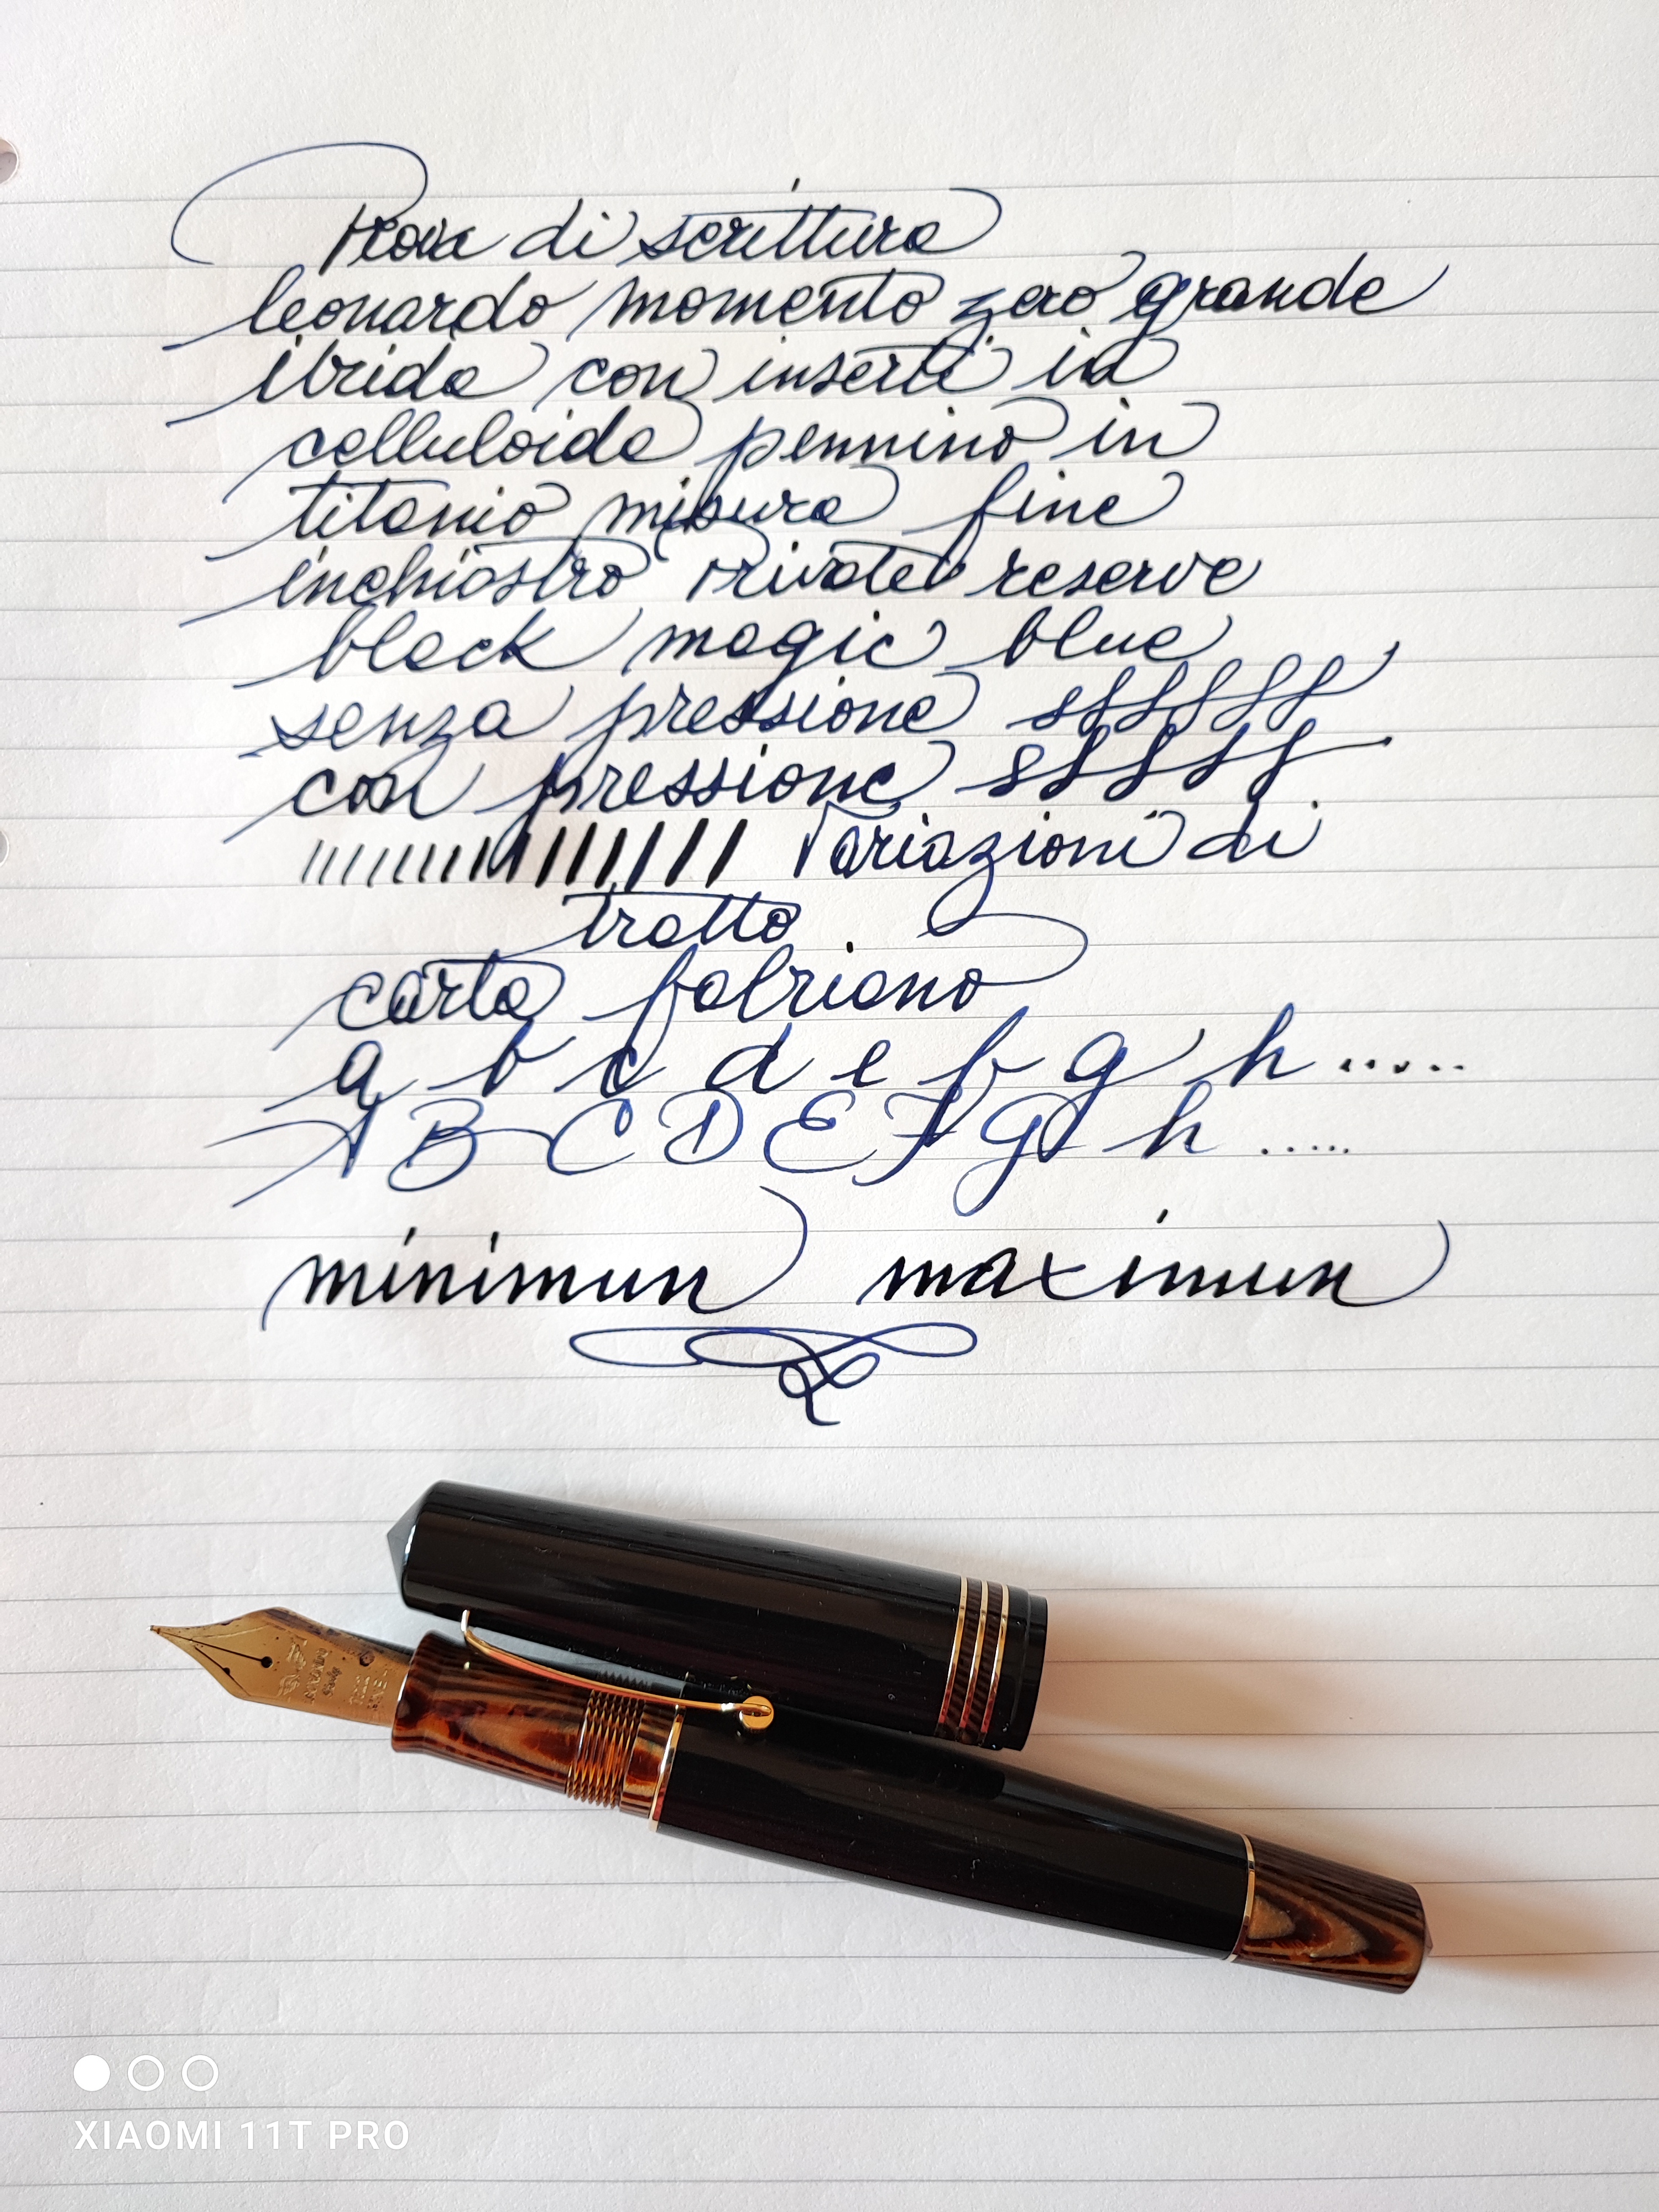 Prova di scrittura
leonardo momento zero grande
ibrida con inserti in
celluloide pennino in
titanio misura fine
inchiostro Private reserve
black magic blue
senza pressione sffffff
con pressione sfffff
Variazioni di
tratto
carta fabriano
a b c d e f g h .....
A B C D E F G h .....
minimun maximun
XIAOMI 11T PRO